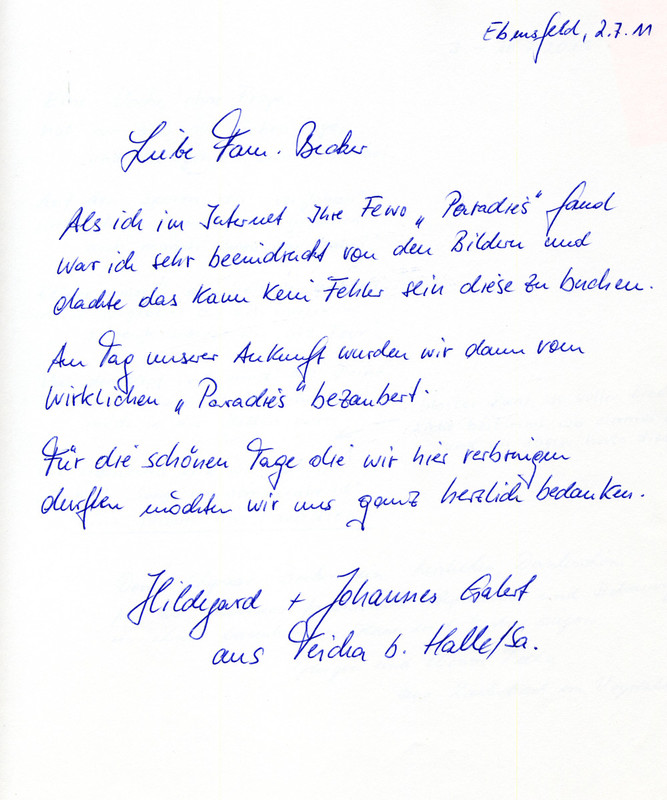 Ebensfeld, 2.7.11
Liebe Fam. Becker
Als ich im Internet Ihre Fewo „Paradies“ fand
war ich sehr beeindruckt von den Bildern und
dachte das kann kein Fehler sein diese zu buchen.
Am Tag unserer Ankunft wurden wir dann vom
wirklichen „Paradies“ bezaubert.
Für die schönen Tage die wir hier verbringen
durften möchten wir uns ganz herzlich bedanken.
Hildegard + Johannes
aus Teicha b. Halle/Sa.